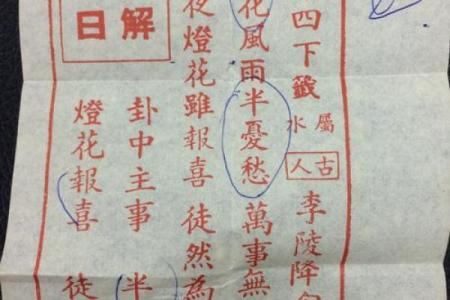 四下籤 屬水 古人 李陵降
花風雨半憂愁 萬事無
夜燈花雖報喜 徒然為
解日
卦中主事 半
燈花報喜 徒